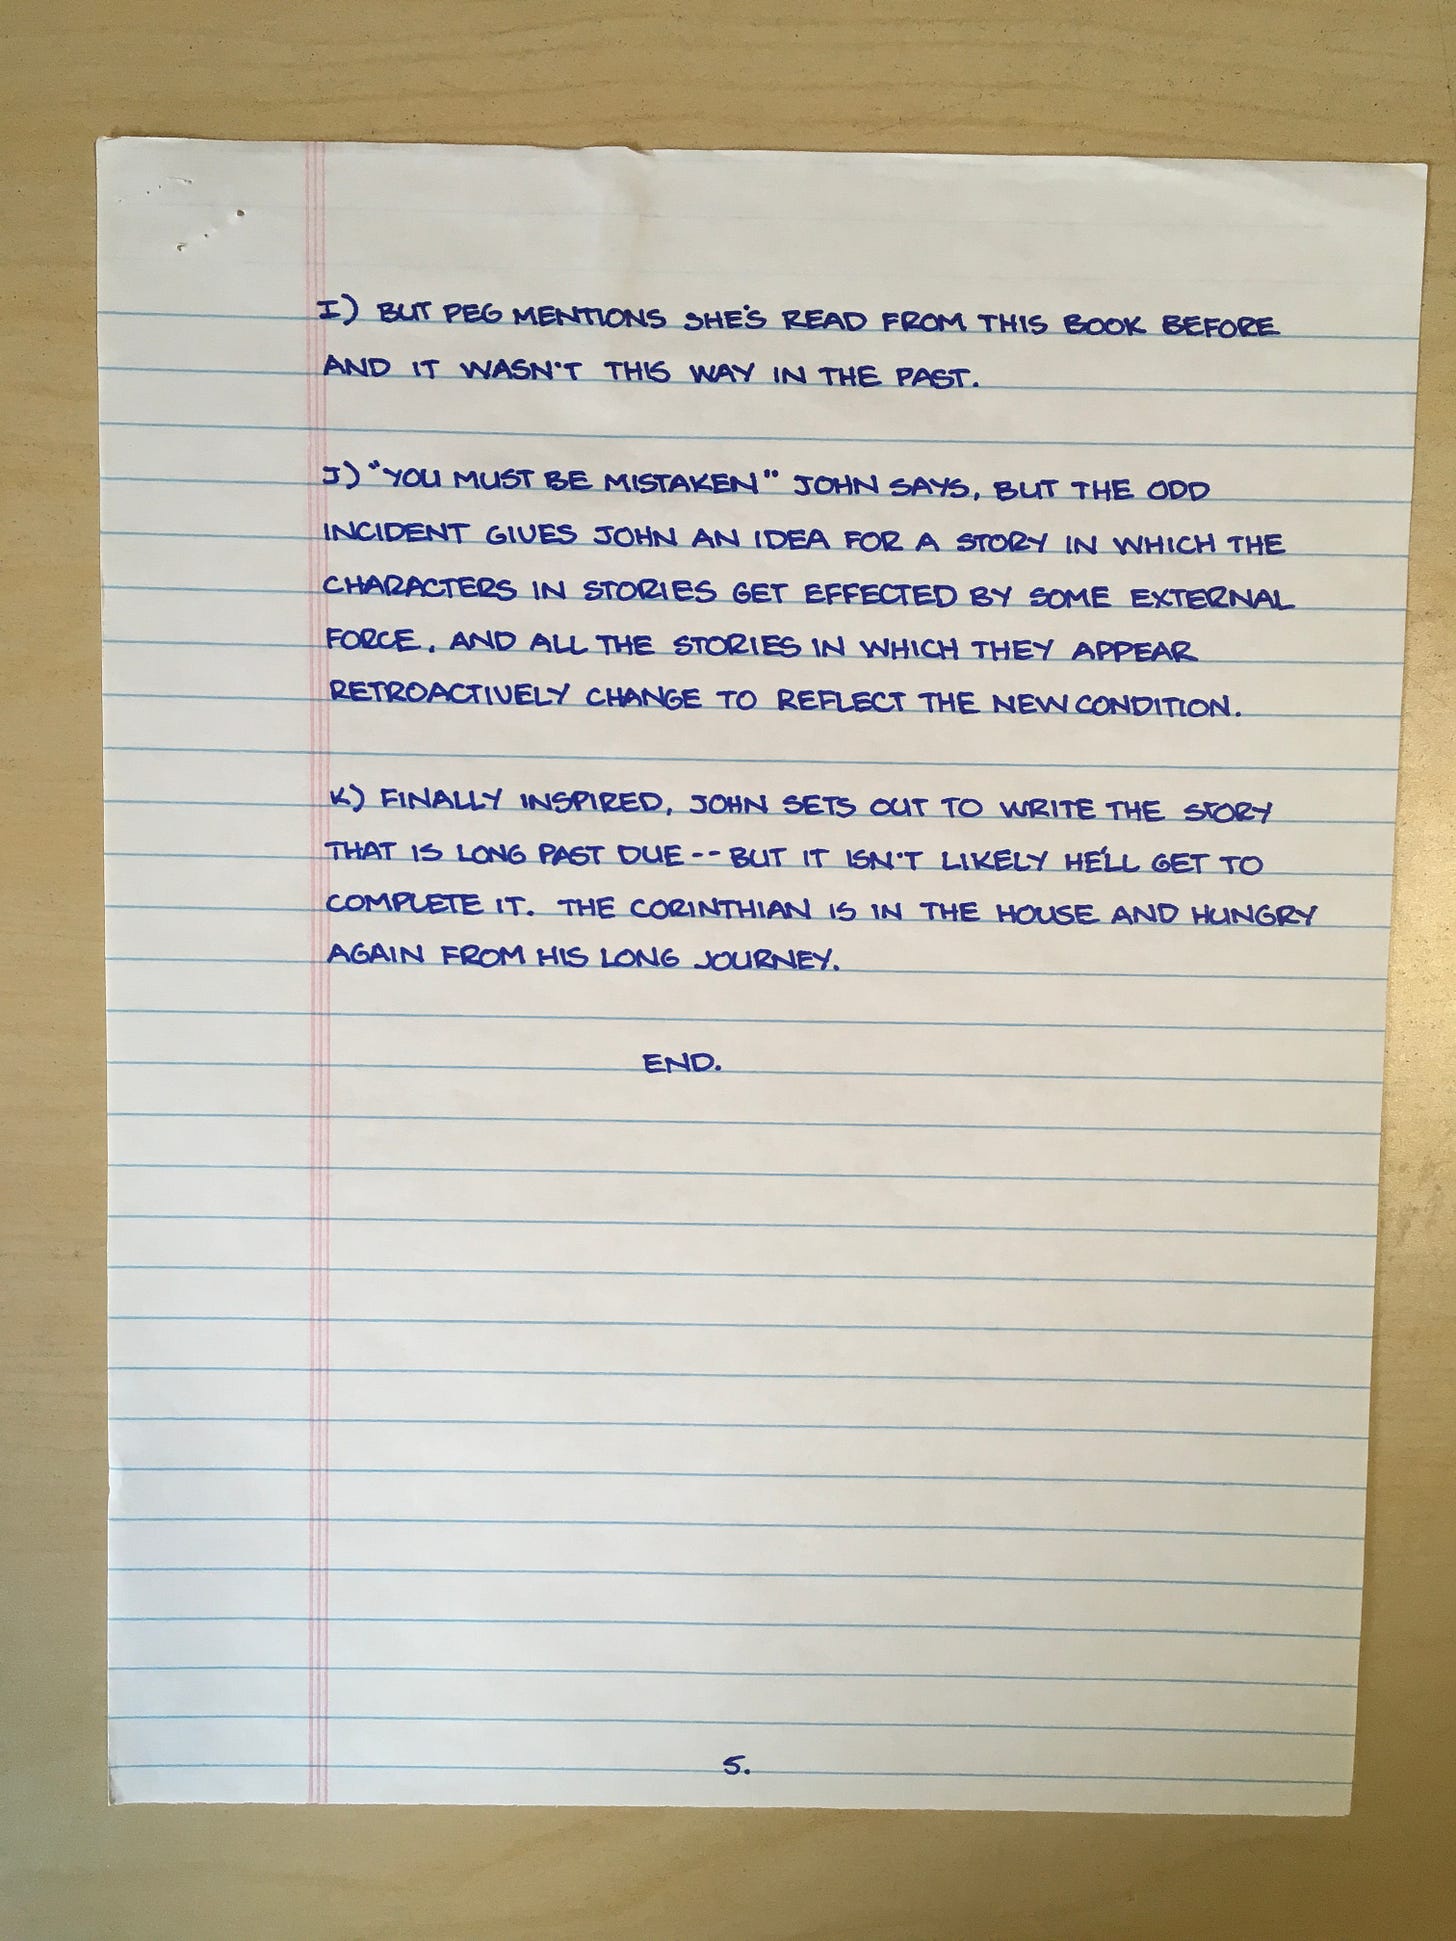 I) BUT PEG MENTIONS SHE'S READ FROM THIS BOOK BEFORE
AND IT WASN'T THIS WAY IN THE PAST.
J) "YOU MUST BE MISTAKEN" JOHN SAYS, BUT THE ODD
INCIDENT GIVES JOHN AN IDEA FOR A STORY IN WHICH THE
CHARACTERS IN STORIES GET EFFECTED BY SOME EXTERNAL
FORCE, AND ALL THE STORIES IN WHICH THEY APPEAR
RETROACTIVELY CHANGE TO REFLECT THE NEW CONDITION.
K) FINALLY INSPIRED, JOHN SETS OUT TO WRITE THE STORY
THAT IS LONG PAST DUE -- BUT IT ISN'T LIKELY HE'LL GET TO
COMPLETE IT. THE CORINTHIAN IS IN THE HOUSE AND HUNGRY
AGAIN FROM HIS LONG JOURNEY.
END.
5.